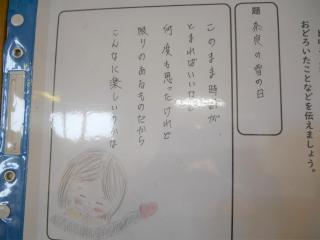 おどろいたことなどを伝えましょう。
題 奈良の雪の日
このまま時間が
とまればいいなと
何度も思ったけれど
限りのあるものだから
こんなに楽しいのかな